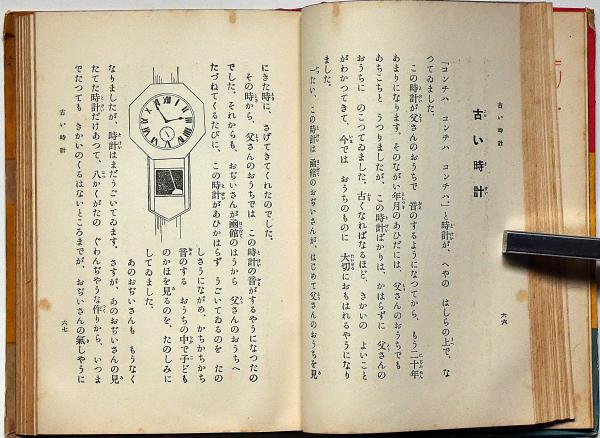 古い時計
古い時計
「コンチハ コンチハ コンチハ」と時計が、へやの はしらの上で、な
つてゐました。
この時計が父さんのおうちで 音のするやうになつてから、もう二十年
あまりになります。そのながい年月のあひだには、父さんのおうちでも
あちこちと うつりましたが、この時計ばかりは、かはらずに 父さんの
おうちに のこつてゐました。古くなればなるほど、きかいの よいこと
がわかつてきて、今では おうちのものに 大切におもはれるやうになり
ました。
いつたい、この時計は 函館のおぢいさんが、はじめて父さんのおうちを見
六六
にきた時に、さげてきてくれたのでした。
その時から、父さんのおうちでは この時計の音がするやうになつたの
でした。それからも、おぢいさんが函館のはうから 父さんのおうちへ
たづねてくるたびに、この時計があひかはらず うごいてゐるのを たの
しさうにながめ、かちかちかち
音のする おうちの中で子ども
のかほを見るのを、たのしみに
してゐました。
あのおぢいさんも もうなく
なりましたが、時計はまだうごいてゐます。さすが、あのおぢいさんの見
たてた時計だけあつて、八かくがたの ぐわんぢやうな作りから、いつま
でたつても きかいのくるはないところまでが、おぢいさんの氣しやうに
古い時計
六七